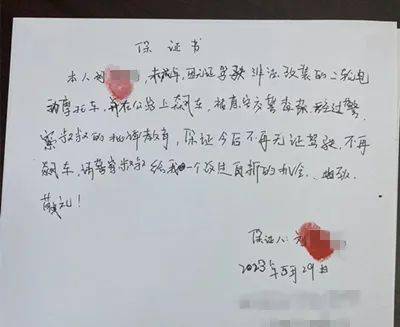 保证书
本人 未成年,因无证驾驶非法改装的二轮电
动摩托车,并在公路上飙车,被 交警查获 经过警
察叔叔的批评教育,保证今后不再无证驾驶,不再
飙车,请警察叔叔给我一个改过自新的机会. 此致
敬礼!
保证人:
2023年5月29日